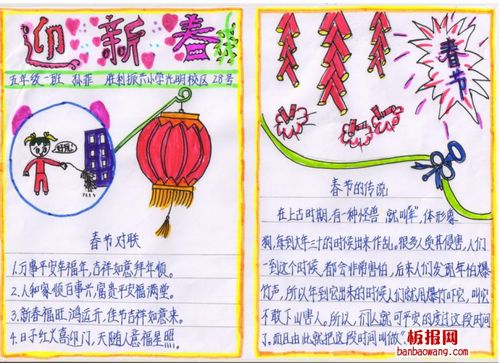 迎新春
五年级一班 孙菲 胜利振兴小学光明校区 28号
好玩!
春节对联
1.万事平安幸福年,吉祥如意拜年顺。
2.人和家顺百事兴,富贵平安福满堂。
3.新春福旺鸿运开,佳节吉祥如意来。
4.日子红火喜迎门,天随人意福星照。
春节
春节的传说
在上古时期,有一种怪兽就叫“年”,体形像
狗,每到大年三十的时候出来作乱。很多人受其侵害,人们
一到这个时候都会非常害怕,后来人们发现年怕爆
竹声,所以年到它出来的时候人们就用爆竹吓它,叫它
不敢下山害人。所以,人们就可平安的度过这段时间
了,而且由此就把这段时间叫做“年”。
板报网
banbaowang.com